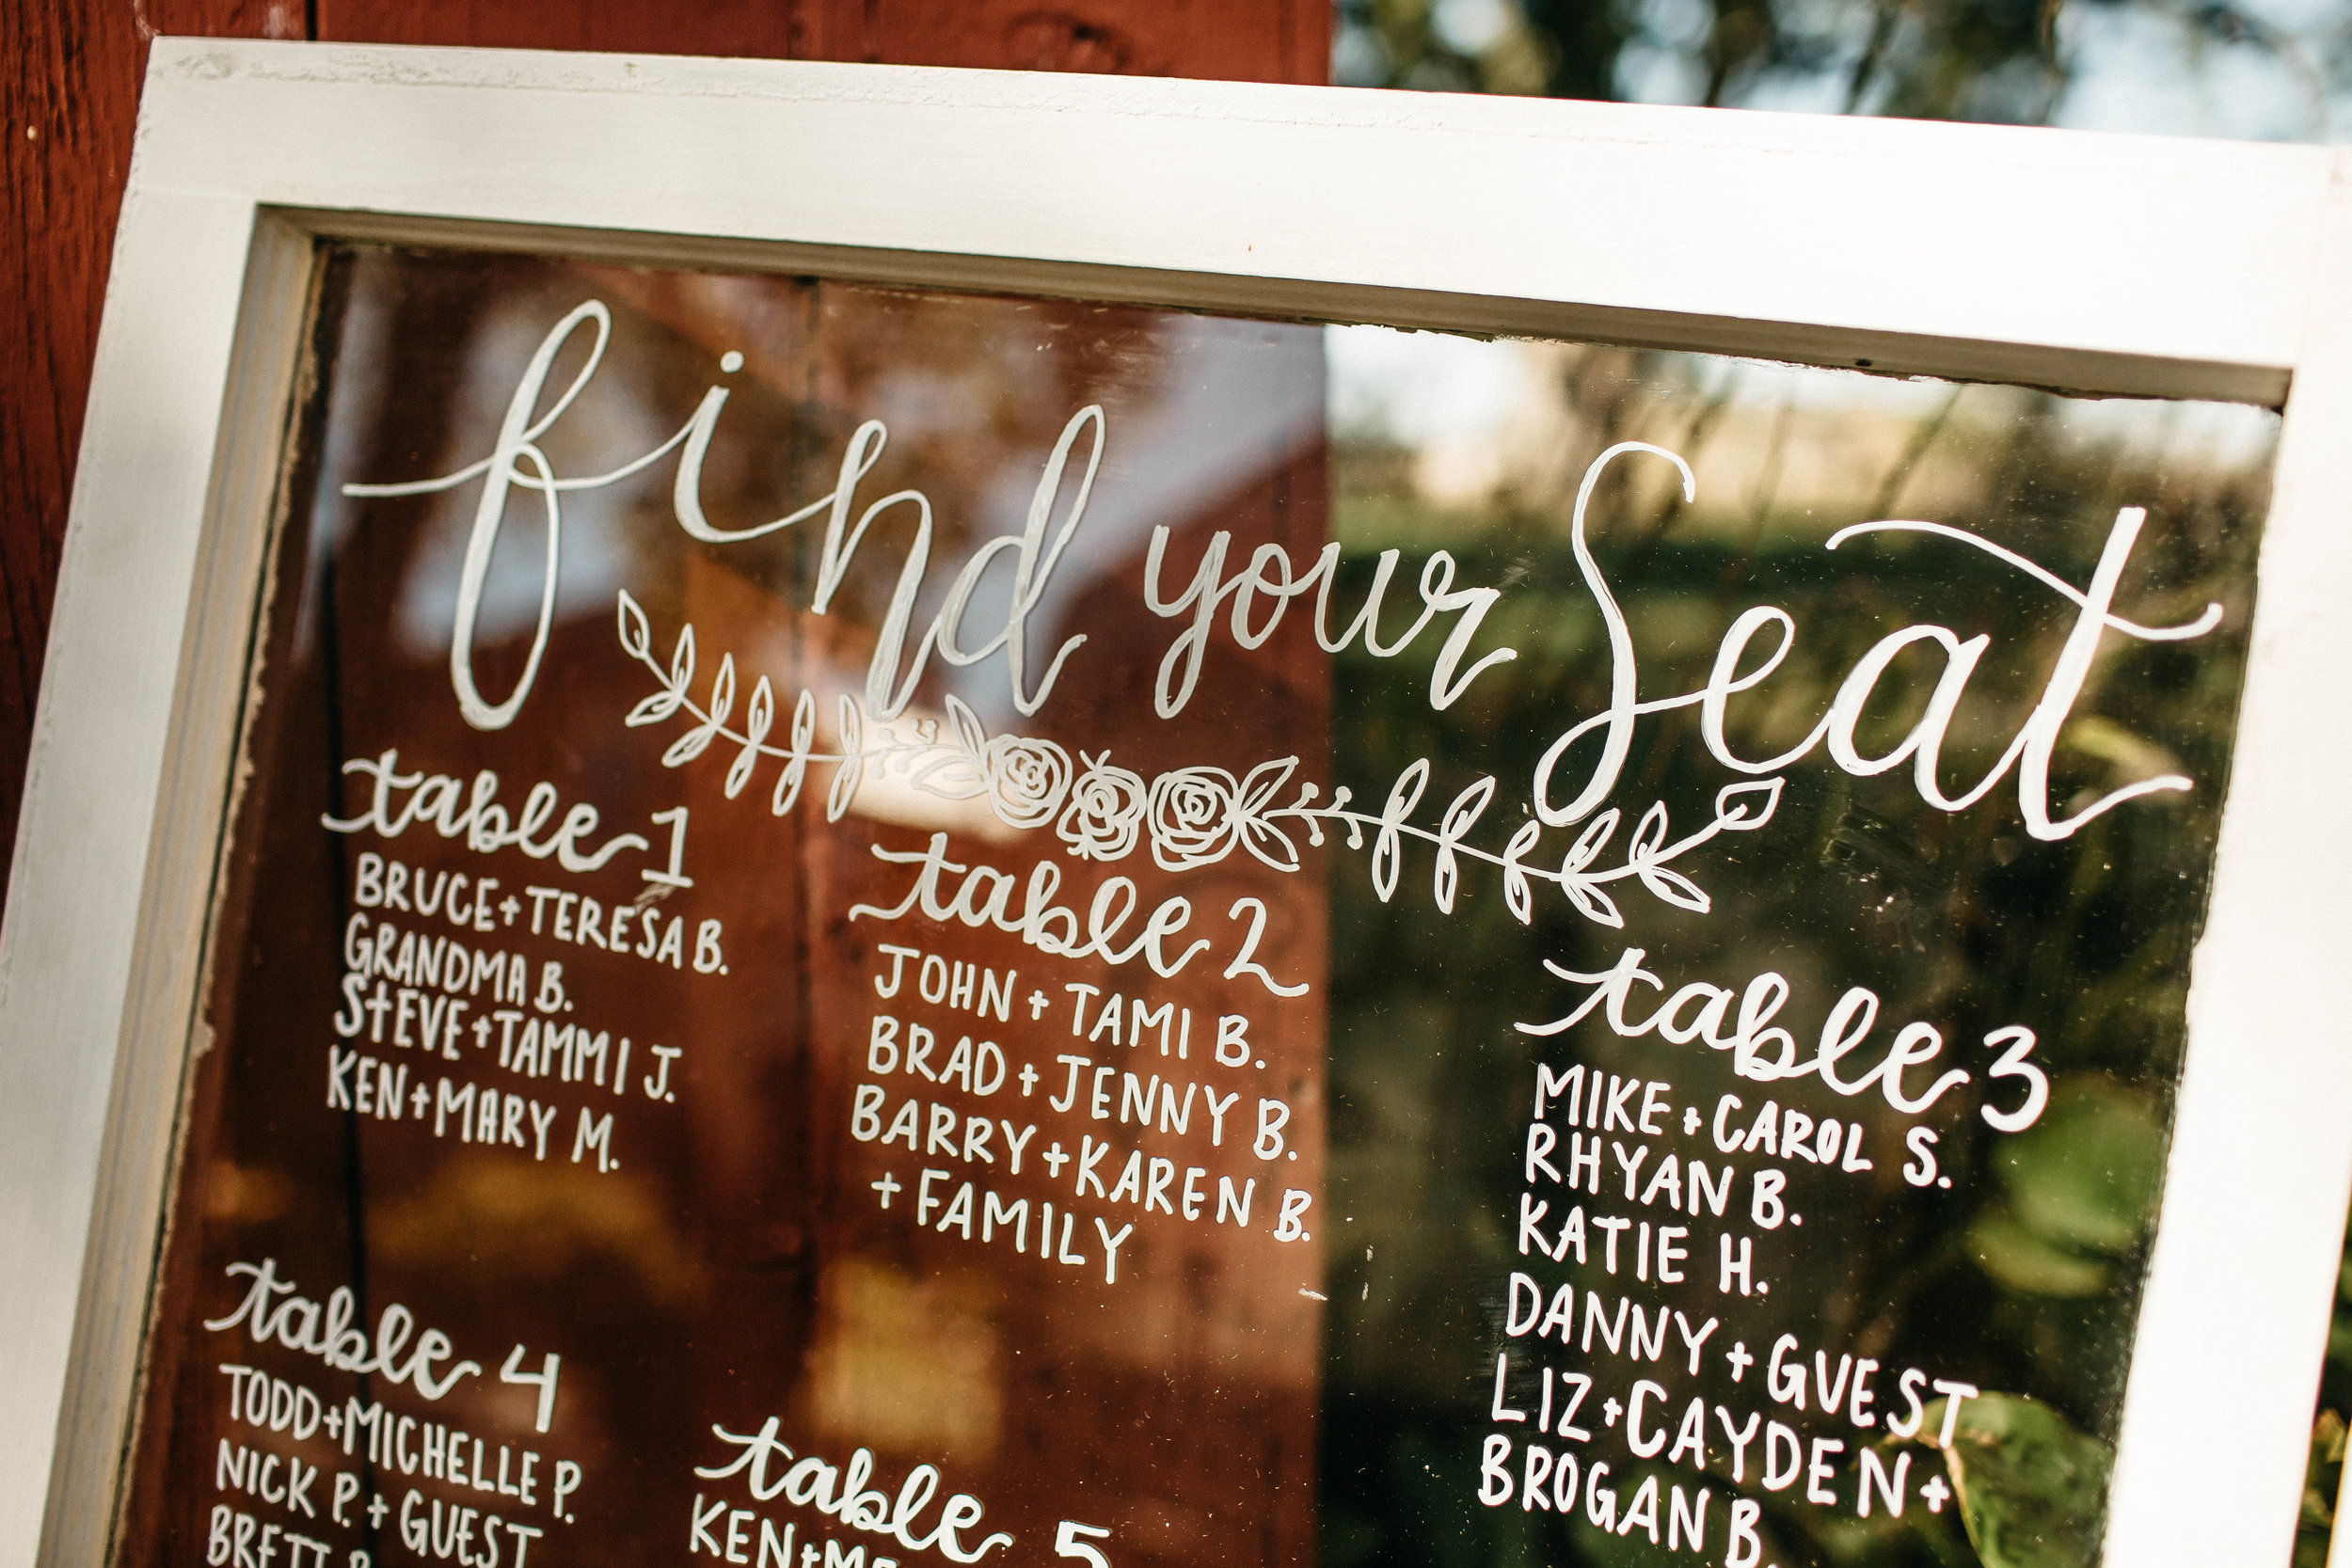 find your Seat
table 1
BRUCE+TERESA B.
GRANDMA B.
STEVE+TAMMI J.
KEN+MARY M.
table 2
JOHN + TAMI B.
BRAD + JENNY B.
BARRY+KAREN B.
+ FAMILY
table 3
MIKE + CAROL S.
RHYAN B.
KATIE H.
DANNY + GUEST
LIZ+CAYDEN+
BROGAN B.
table 4
TODD+MICHELLE P.
NICK P. + GUEST
BRETT
table 5
KEN+